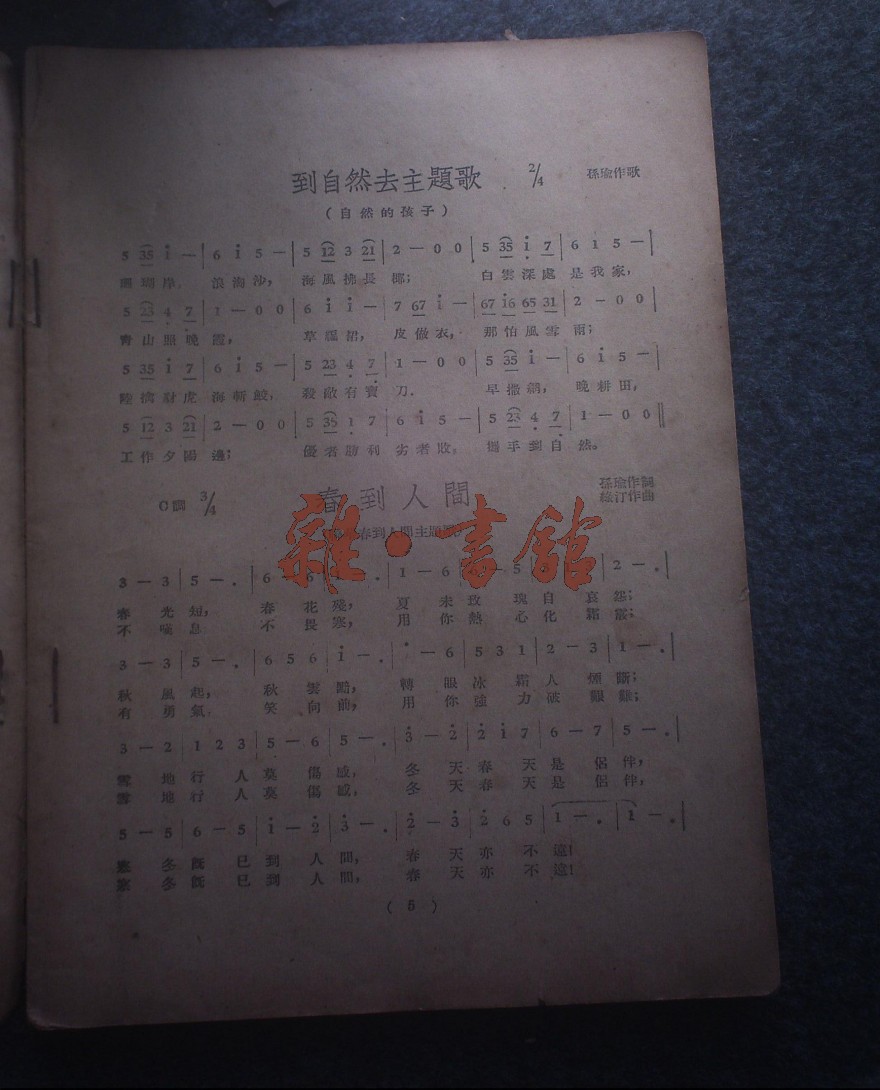 到自然去主題歌 2/4 孫瑜作歌
(自然的孩子)
5 35 i — | 6 i 5 — | 5 12 3 21 | 2 — 0 0 | 5 35 i 7 | 6 1 5 — |
珊瑚岸, 浪淘沙, 海風拂長椰; 白雲深處是我家,
5 23 4 7 | 1 — 0 0 | 6 i i — | 7 67 i — | 67 i6 65 31 | 2 — 0 0 |
青山照晚霞, 草 裙, 皮做衣, 那怕風雪雨;
5 35 i 7 | 6 i 5 — | 5 23 4 7 | 1 — 0 0 | 5 35 i — | 6 i 5 — |
陸擒豺虎海斬鮫, 殺敵有寶刀. 早撒網, 晚耕田,
5 12 3 21 | 2 — 0 0 | 5 35 1 7 | 6 i 5 — | 5 23 4 7 | 1 — 0 0 ‖
工作夕陽邊; 優者勝利劣者敗. 攜手到自然。
C調 3/4 春到人間 孫瑜作詞
綠汀作曲
春到人間主題
雜·書館
3 — 3 | 5 — . | 6 — 6 | . | 1 — 6 | 5 | 2 — . |
春光短, 春花殘, 夏未玫瑰自哀怨;
不嘆息 不畏寒, 用你熱心化霜雪;
3 — 3 | 5 — . | 6 5 6 | i — . | i — 6 | 5 3 1 | 2 — 3 | 1 — . |
秋風起, 秋雲黯, 轉眼冰霜人煙斷;
有勇氣 笑向前, 用你強力破艱難;
3 — 2 | 1 2 3 | 5 — 6 | 5 — . | 3 — 2 | 2 i 7 | 6 — 7 | 5 — . |
雪地行人莫傷感, 冬天春天是侶伴,
雪地行人莫傷感, 冬天春天是侶伴,
5 — 5 | 6 — 5 | i — 2 | 3 — . | 2 — 3 | 2 6 5 | 1 — . | 1 — . |
寒冬既已到人間, 春天亦不遠!
寒冬既已到人間, 春天亦不遠!
( 5 )